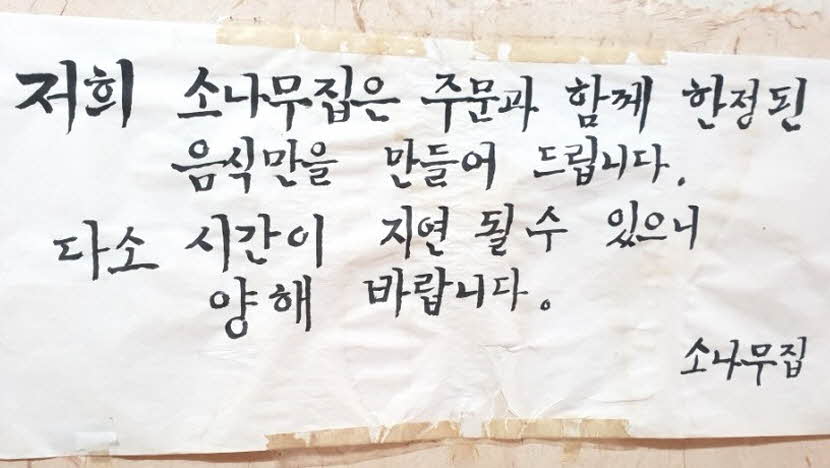 저희 소나무집은 주문과 함께 한정된
음식만을 만들어 드립니다.
다소 시간이 지연 될수 있으니
양해 바랍니다.
소나무집